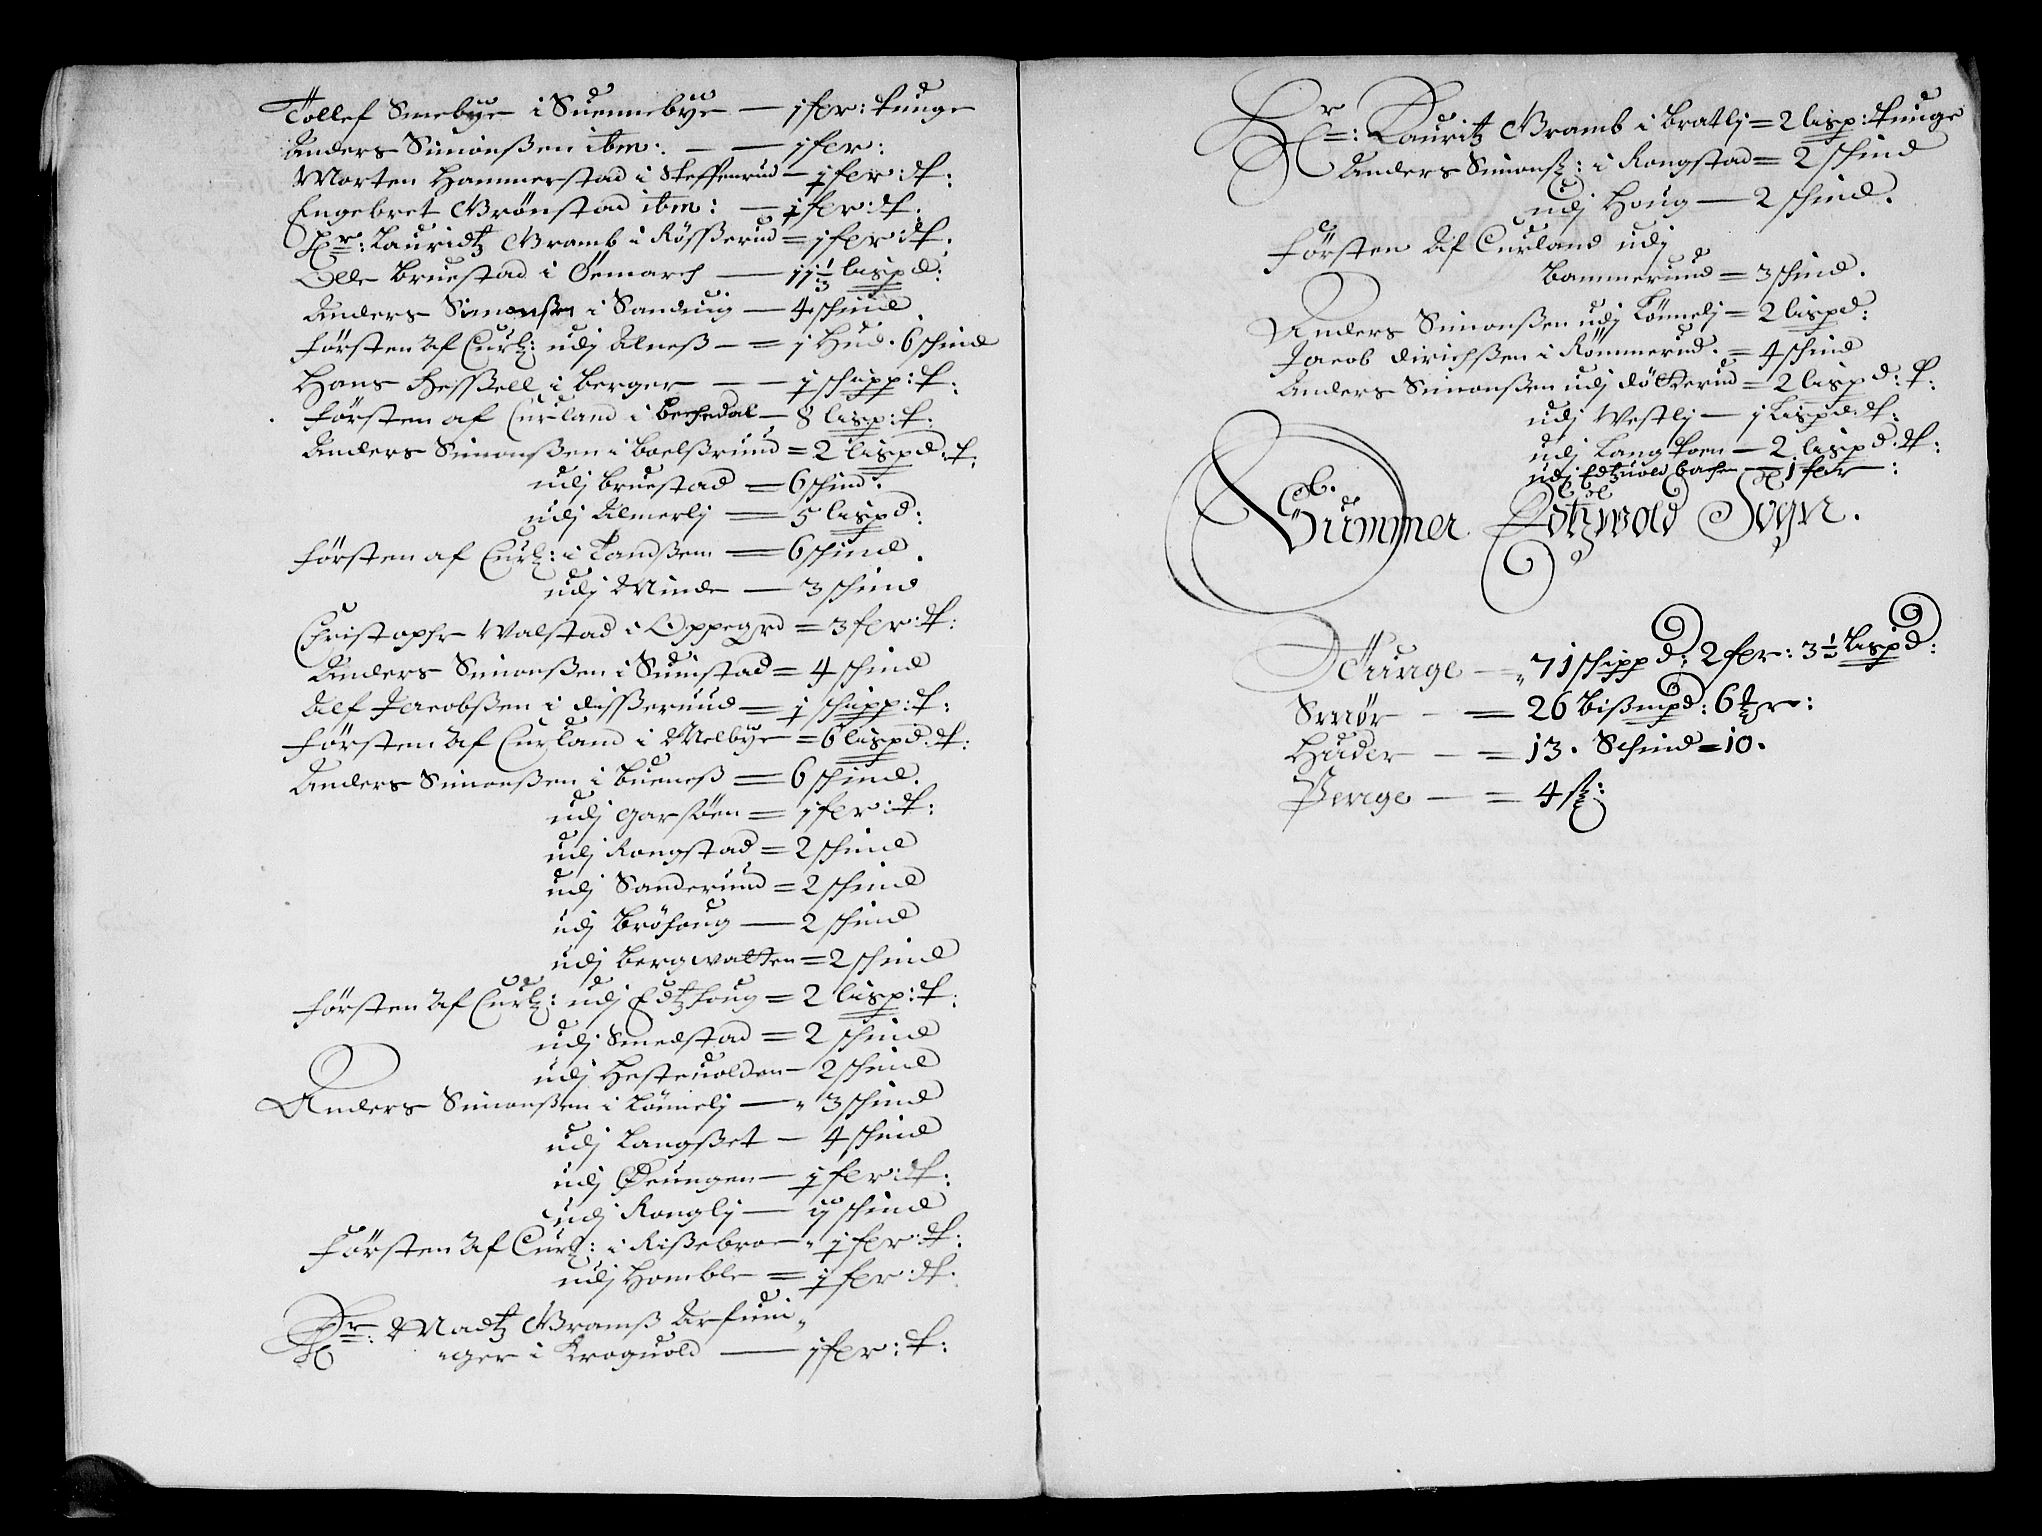 Tollef Smebÿe i Suennebÿe — 1 fer: tunge
Anders Simonßen ibm: — — 1 fer:
Morten Hammerstad i Steffenrud — 1 fer: t:
Engebret Grönstad ibm: — 1 fer: t:
Hr: Lauridtz Bramb i Rößerud = 1 fer: t:
Olle Bruestad i Öemarch — 11 1/2 lispd:
Anders Simonßen i Sanduig — 4 schind
Försten Af Curl: udj Alneß — = 1 Hud. 6 schind
Hans Heßell i Berger — — 1 schipp: t:
Försten af Curland i Bechedal — 8 lisp: t:
Anders Simonßen i Boelßruud = 2 lispd: t:
udj Bruestad = 6 schind.
udj Almerlj = 5 lispd:
Försten af Curl: i Tandßem = 6 schind.
udj Minde — 3 schind
Christopher Walstad i Oppegrd = 3 fer: t:
Anders Simonßen i Suindstad = 4 schind
Alf Jacobßen i dißeruud = 1 schipp: t:
Försten Af Curland i Melbÿe = 6 lispd: t:
Anders Simonßen i Bueneß = 6 schind.
udj Garsöen = 1 fer: t:
udj Rongstad = 2 schind
udj Sanderuud = 2 schind
udj Bröhoug — 2 schind
udj Bergwatten = 2 schind
Försten Af Curl: udj Edtzhoug = 2 lisp: t:
udj Smedstad = 2 schind
udj Hesteuolden — 2 schind
Anders Simonßen i Lönnelj — 3 schind
udj Langßet — 4 schind
udj Öeungen — 1 fer: t:
udj Ronglj — ij schind
Försten Af Curl: i Rißebroe 1 fer: t:
udj Homble = 1 fer: t:
Hr: Madtz Gramß Arfuin
ger i Kroguold — 1 fer: t:
Hr: Lauritz Bramb i Bratlj = 2 lisp: tunge
Anders Simonß: i Rongstad = 2 schind
udj Houg — 2 schind.
Försten Af Curland udj
Bammeruud = 3 schind.
Anders Simonßen udj Lönnelj = 2 lispd:
Jacob dirichßen i Römmerud. = 4 schind
Anders Simonßen udj dölkerud = 2 lispd: t:
udj Westlj — 1 Lispd: t:
udj Langtoen — 2 lispd: t:
udj Edtzuold bache — 1 fer:
Summer Edtzwold Sogn.
Tunge — = 71 schippd: 2 fer: 3 1/2 Lispd:
Smör — = 26 Bißmpd: 6 mr:
Huder — = 13. Schind = 10.
Penge — = 4 ß: